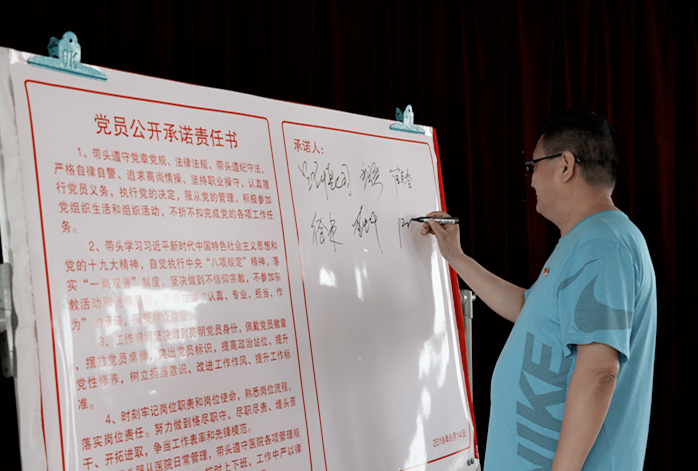 党员公开承诺责任书
1、带头遵守党章党规、法律法规、带头遵纪守法,
严格自律自警、追求高尚情操、坚持职业操守,认真履
行党员义务,执行党的决定,服从党的管理,积极参加
党组织生活和组织活动,不折不扣完成党的各项工作任
务。
2、带头学习习近平新时代中国特色社会主义思想和
党的十九大精神,自觉执行中央“八项规定”精神,落
实“一岗双责”制度,坚决做到不信仰宗教,不参加宗
教活动和
认真、专业、担当、作
为”
3、工作期间
做到亮明党员身份,佩戴党员徽章
,摆放党员桌牌,突出党员标识,提高政治站位、提升
党性修养,树立担当意识、改进工作作风、提升工作标
准。
4、时刻牢记岗位职责和岗位使命,熟悉岗位流程,
落实岗位责任。努力做到恪尽职守、尽职尽责、埋头苦
干、开拓进取,争当工作表率和先锋模范。
服从医院日常管理,带头遵守医院各项管理规
按时上下班,工作中严以律
承诺人:
2018年6月14日
NIKE